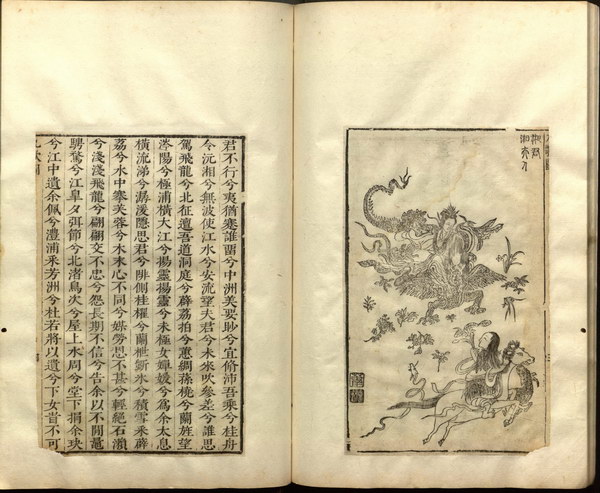 湘君
湘夫人
君不行兮夷猶蹇誰畱兮中洲美要眇兮宜脩沛吾乘兮桂舟
令沅湘兮無波使江水兮安流望夫君兮未來吹參差兮誰思
駕飛龍兮北征邅吾道兮洞庭薜荔拍兮蕙綢蓀橈兮蘭旌望
涔陽兮極浦橫大江兮揚靈揚靈兮未極女嬋媛兮爲余太息
橫流涕兮潺湲隱思君兮陫側桂櫂兮蘭枻斲氷兮積雪采薜
荔兮水中搴芙蓉兮木末心不同兮媒勞恩不甚兮輕絕石瀨
兮淺淺飛龍兮翩翩交不忠兮怨長期不信兮告余以不閒鼂
騁騖兮江皋夕弭節兮北渚鳥次兮屋上水周兮堂下捐余玦
兮江中遺余佩兮澧浦采芳洲兮杜若將以遺兮下女旹不可